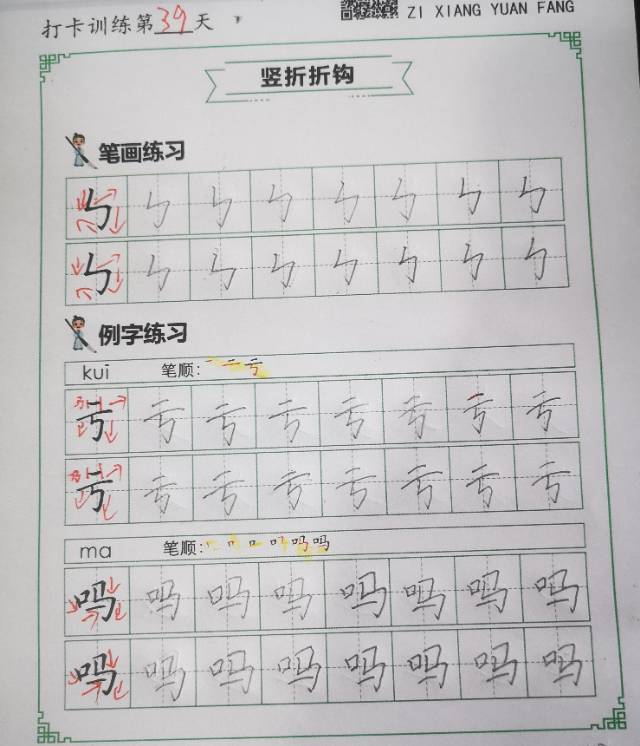 打卡训练第39天
ZI XIANG YUAN FANG
竖折折钩
笔画练习
ㄣ ㄣ ㄣ ㄣ ㄣ ㄣ ㄣ ㄣ
ㄣ ㄣ ㄣ ㄣ ㄣ ㄣ ㄣ ㄣ
例字练习
kuī 笔顺: 一 二 亏
亏 亏 亏 亏 亏 亏 亏 亏
亏 亏 亏 亏 亏 亏 亏 亏
ma 笔顺: 吗 吗
吗 吗 吗 吗 吗 吗 吗 吗
吗 吗 吗 吗 吗 吗 吗 吗